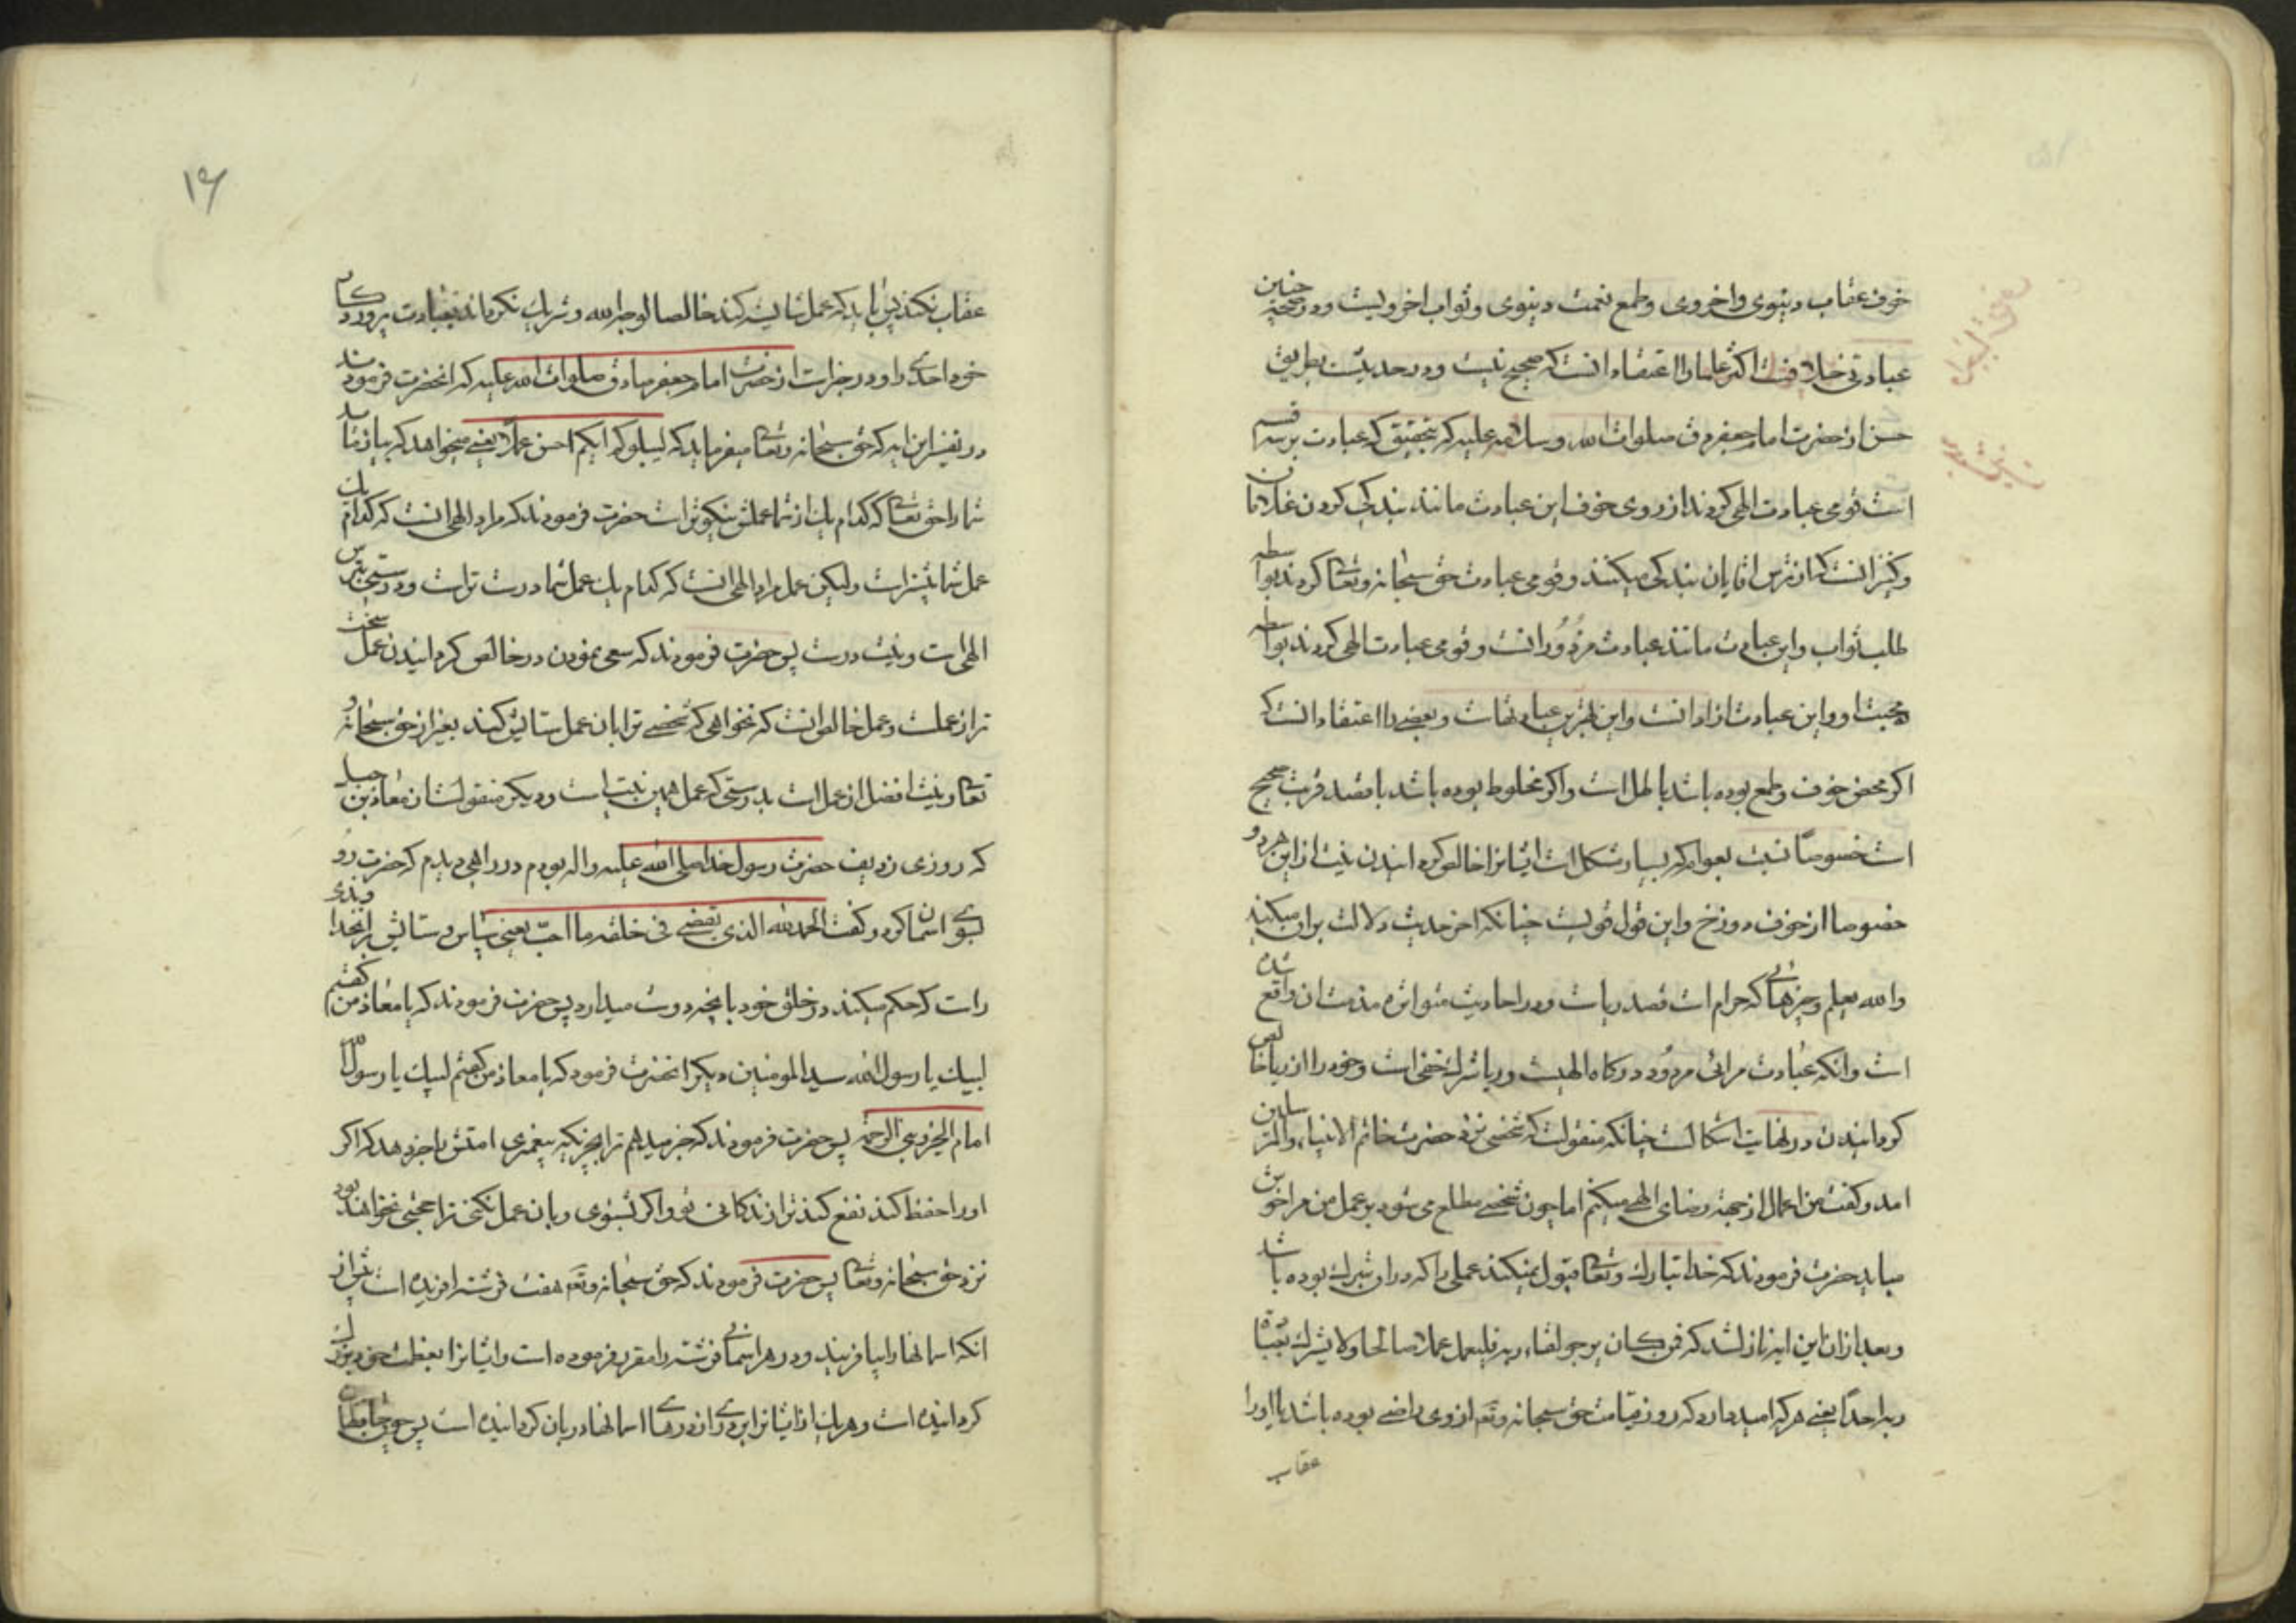 خوف عقاب دینوی و اخروی و طمع نعمت دینوی و ثواب اخرویست و در صحه چنین
عبادتی خلافست اکثر علما را اعتقاد انست که صحیح نیست و در حدیث بطریق
حسن از حضرت امام جعفر صلوات الله و سلامه علیه که بتحقیق که عبادت بر سه قسم
است قومی عبادت الهی کردند از روی خوف این عبادت مانند بندکی کردن غلامان
و کنیزانست که از ترس اقایان بندکی میکنند و قومی عبادت حق سبحانه و تعالی کردند بواسطه
طلب ثواب و این عبادت مانند عبادت مزدورانست و قومی عبادت الهی کردند بواسطه
محبت او و این عبادت ازادانست و این بهترین عبادتهاست و بعضی را اعتقاد انست که
اکر محض خوف و طمع بوده باشد باطل است و اکر مخلوط بوده باشد با قصد قربت صحیح
است خصوصا نسبت بعوام که بسیار مشکل است ایشانرا خالص کردانیدن نیت از این هر دو
خصوصا از خوف دوزخ و این قول قویست چنانکه اخر حدیث دلالت بران میکند
والله یعلم و چیزهائی که حرام است قصد ریاست و در احادیث متواتره مذمت ان واقع شده
است و انکه عبادت مرائی مردود درکاه الهیست و ریا شرک خفی است و خود را از ریا خالص
کردانیدن در نهایت اشکالست چنانکه منقولست که شخصی نزد حضرت خاتم الانبیاء والمرسلین
امد و کفت من اعمال از جهة رضای الهی میکنم اما چون شخصی مطلع می شود بر عمل من مرا خوش
میاید حضرت فرمودند که خدا تبارک و تعالی قبول نمیکند عملی را که در او شرک بوده باشد
و بعد از ان این ایه نازلشد که فمن کان یرجو لقاء ربه فلیعمل عملا صالحا ولا یشرک بعبادة
ربه احدا یعنی هر که امید دارد که روز قیامت حق سبحانه و تعم از وی راضی بوده باشد یا او را
عقاب
۱۶
عقاب نکند پس باید که عمل شایسته کند خالصا لوجه الله و شریک نکرداند بعبادت پروردکار
خود احدی را و در خبر است از حضرت امام جعفر صادق صلوات الله علیه که انحضرت فرمودند
در تفسیر این ایه که حق سبحانه و تعالی میفرماید که لیبلوکم ایکم احسن عملا یعنی میخواهد که بیازماید
شما را حق تعالی که کدام یک از شما عملش نیکوتر است حضرت فرمودند که مراد الهی انست که کدام یک
عمل شما بیشتر است ولیکن عمل مراد الهی انست که کدام یک عمل شما درست تر است و درستی بترس
الهی است و نیت درست پس حضرت فرمودند که سعی نمودن در خالص کردانیدن عمل سخت
تر از عملست و عمل خالص انست که نخواهی که شخصی ترا بان عمل ستایش کند بغیر از حق سبحانه و
تعالی و نیت افضل از عمل است بدرستی که عمل همین نیت است و دیکر منقولست از معاذ بن جبل
که روزی ردیف حضرت رسول خدا صلی الله علیه و اله بودم در راهی دیدم که حضرت رو
بسوی اسمان کرد و کفت الحمد لله الذی یقضی فی خلقه ما احب یعنی سپاس و ستایش مر انخداوندی
راست که حکم میکند در خلق خود بانچه دوست میدارد پس حضرت فرمودند که یا معاذ من کفتم
لبیک یا رسول الله سید المومنین دیکر انحضرت فرمود که یا معاذ من کفتم لبیک یا رسول الله
امام الخیر و نبی الرحمة پس حضرت فرمودند که خبر میدهم ترا بچیزیکه پیغمبری امتش را خبر ندهد که اکر
او را حفظ کند نفع کند ترا زندکانی تو و اکر بشنوی و بان عمل نکنی ترا حجتی نخواهد بود
نزد حق سبحانه و تعالی پس حضرت فرمودند که حق سبحانه و تعم هفت فرشته افریده است پیش از
انکه اسمانها را بیافریند و در هر اسمانی فرشته را مقرر فرموده است و ایشانرا بعظمت خود بزرک
کردانیده است و هر یک از ایشانرا بر دری از درهای اسمانها دربان کردانیده است پس چون حافظان